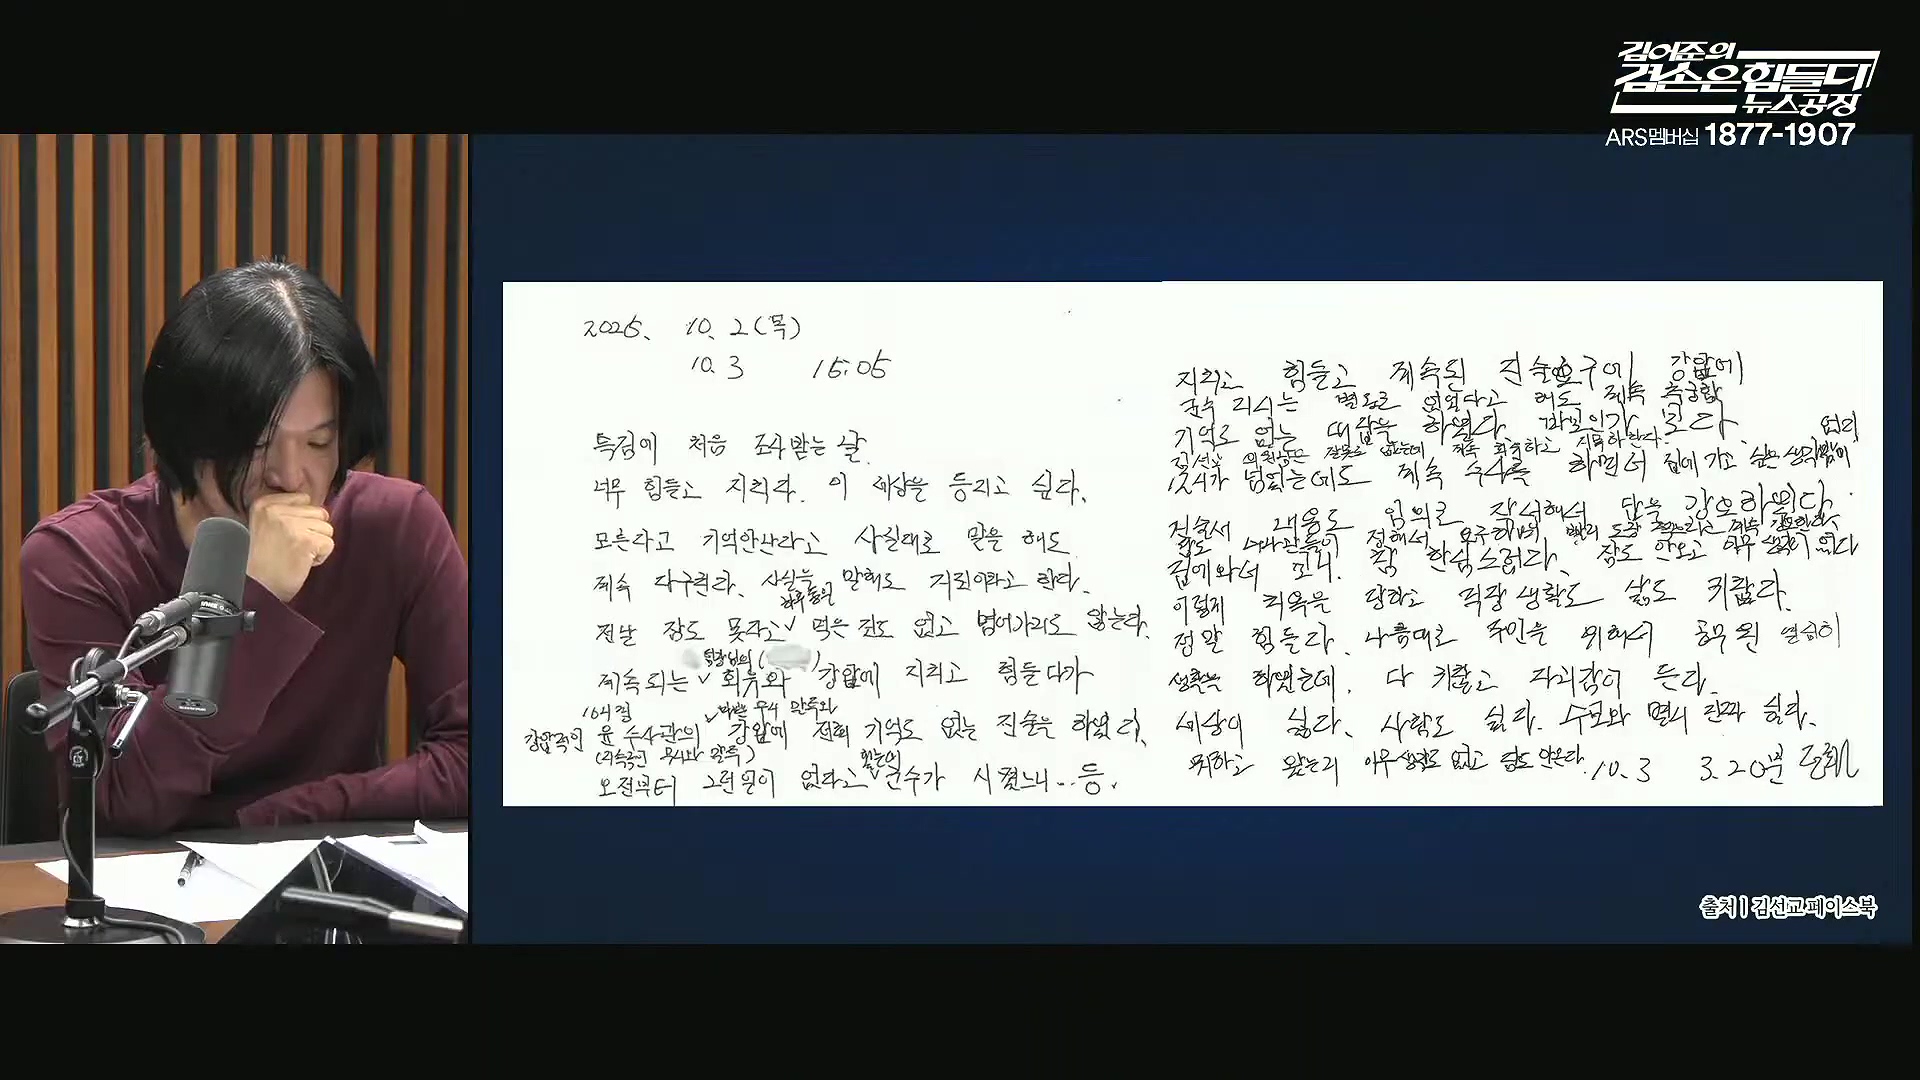 김어준의
겸손은힘들다
뉴스공장
ARS멤버십 1877-1907
2025. 10. 2 (목)
10. 3 15:05
특검에 처음 조사받는 날.
너무 힘들고 지치다. 이 세상을 등지고 싶다.
모른다고 기억안난다고 사실대로 말을 해도
계속 다구친다. 사실을 말해도 거짓이라고 한다.
전날 잠도 못자고 먹은 것도 없고
계속되는 회유와 강압에 지치고 힘들다가
강압적인 윤 수사관의 강압에 전혀 기억도 없는 진술을 하였다.
(계속적인 무시와 말투)
오전부터 그런일이 없다고 군수가 시켰느니... 등.
지치고 힘들고 계속된 진술요구에 강압에
군수 지시는 별도로 없었다고 해도 계속 추궁함
기억도 없는 대답을 하였다
김선교 의원님은 잘못도 없는데 계속 회유하고 지목하란다.
12시가 넘었는데도 계속 수사를 하면서 집에 가고 싶은 생각밖에
없다
진술서 내용도 임의로 작성해서 답을 강요하였다.
답도 수사관들이 정해서 요구하며 빨리 도장 찍으라고 계속 강요한다.
집에와서 보니 참 한심스럽다. 잠도 안오고 아무 생각이 없다
이렇게 치욕을 당하고 직장생활도 삶도 귀찮다.
정말 힘들다. 나름대로 주민을 위해서 공무원 열심히
생활을 하였는데 다 귀찮고 자괴감이 든다.
세상이 싫다. 사람도 싫다. 수모와 멸시 진짜 싫다.
아무생각도 없고 잠도 안온다. 10. 3 3.20분
출처 | 김선교 페이스북